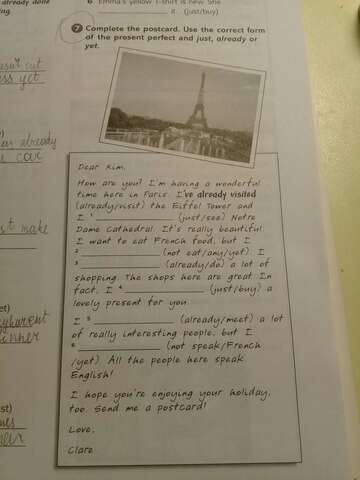 already done
6 Emma's yellow T-shirt is new. She
it. (just/buy)
7 Complete the postcard. Use the correct form
of the present perfect and just, already or
yet.
already
car
make
Dear Kim,
How are you? I'm having a wonderful
time here in Paris. I've already visited
(already/visit) the Eiffel Tower and
I 1 (just/see) Notre
Dame Cathedral. It's really beautiful.
I want to eat French food, but I
2 (not eat/any/yet). I
3 (already/do) a lot of
shopping. The shops here are great. In
fact, I 4 (just/buy) a
lovely present for you.
I 5 (already/meet) a lot
of really interesting people, but I
6 (not speak/French
/yet). All the people here speak
English!
I hope you're enjoying your holiday,
too. Send me a postcard!
Love,
Clare